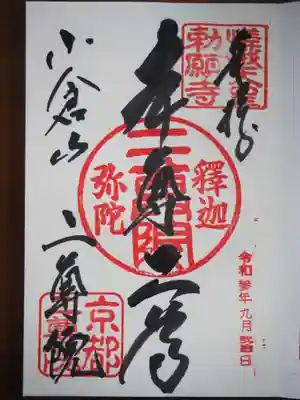 奉拝
嵯峨天皇
勅願寺
本尊二尊
釋迦
弥陀
二尊院
小倉山
二尊院
京都
令和参年九月弐拾日